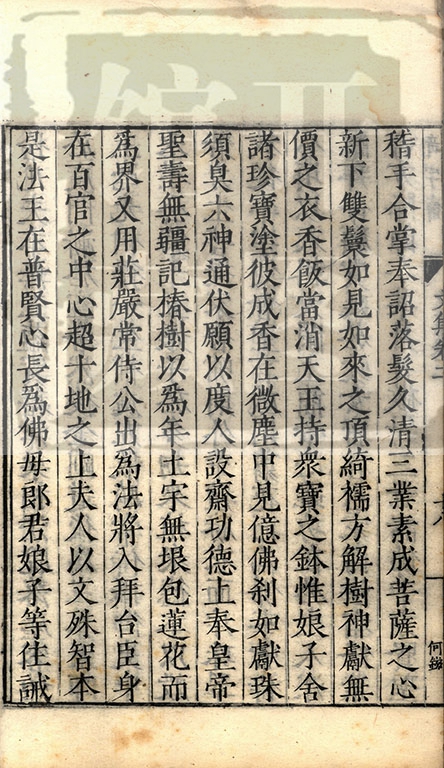 稽手合掌奉詔落髮久清三業素成菩薩之心
新下雙鬟如見如來之頂綺襦方解樹神獻無
價之衣香飯當消天王持衆寶之鉢惟娘子舍
諸珍寶塗彼戒香在微塵中見億佛刹如獻珠
須臾六神通伏願以度人設齋功德上奉皇帝
聖壽無疆記椿樹以爲年土宇無垠包蓮花而
爲界又用莊嚴常侍公出為法將入拜台臣身
在百官之中心超十地之上夫人以文殊智本
是法王在普賢心長爲佛母郎君娘子等住誡